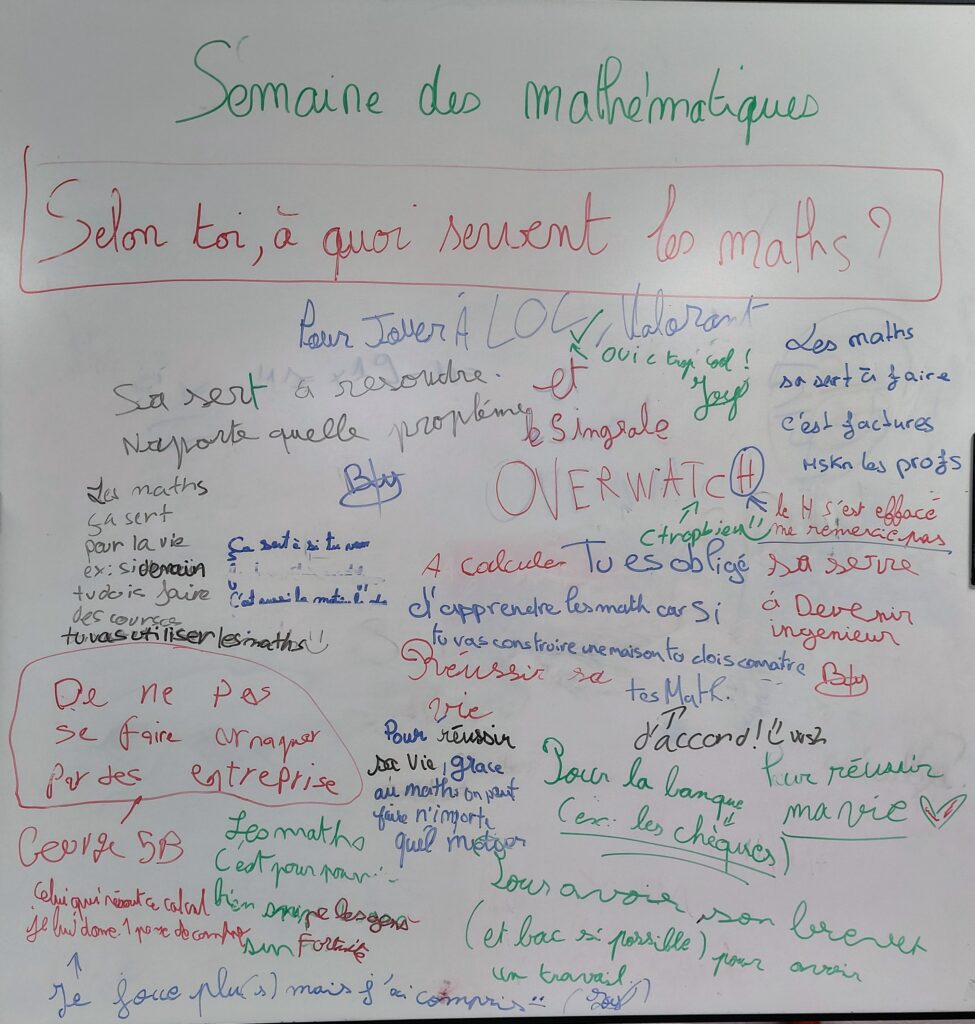 Semaine des mathématiques
Selon toi, à quoi servent les maths ?
Pour Jouer À LOL, Valorant
oui c trop cool !
et
le Singrale
OVERWATCH
c trop bien
le H s'est effacé
me remercie pas
Sa sert à resoudre.
Naporte quelle problème
Les maths
sa sert à faire
c'est factures
Mskn les profs
Les maths
ça sert
pour la vie
ex: si demain
tu dois faire
des courses
tu vas utiliser les maths
Ça sert à si tu
C'est aussi la
A calculer
Tu es obligé
d'apprendre les math car si
tu vas construire une maison tu dois connaître
tes Math.
d'accord !
sa serre
à Devenir
ingenieur
Réussir sa
vie
De ne pas
se faire arnaquer
par des entreprise
George 5B
Pour réussir
sa vie, grace
au maths on peut
faire n'importe
quel metier
Pour la banque
(ex: les chèques)
Pour réussir
ma vie
Les maths
C'est pour
bien les gens
sur Fortnite
celui qui résout ce calcul
je lui donne 1 paxe de compte
Je joue plu(s) mais j'ai compris
Pour avoir son brevet
(et bac si possible) pour avoir
un travail.